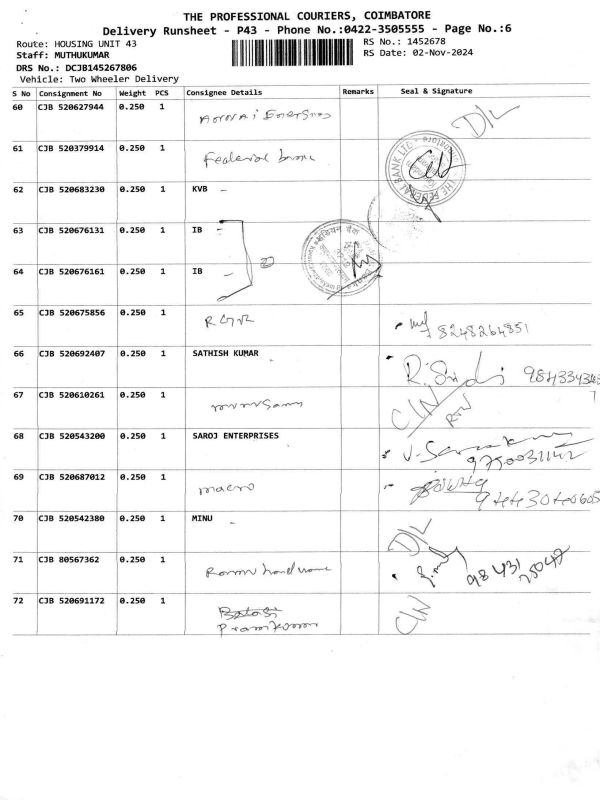 THE PROFESSIONAL COURIERS, COIMBATORE
Delivery Runsheet - P43 - Phone No.:0422-3505555 - Page No.:6
Route: HOUSING UNIT 43
Staff: MUTHUKUMAR
DRS No.: DCJB145267806
Vehicle: Two Wheeler Delivery
RS No.: 1452678
RS Date: 02-Nov-2024
S No Consignment No Weight PCS Consignee Details Remarks Seal & Signature
60 CJB 520627944 0.250 1 D/L
61 CJB 520379914 0.250 1 Federal THE FEDERAL BANK LTD
62 CJB 520683230 0.250 1 KVB -
63 CJB 520676131 0.250 1 IB -
64 CJB 520676161 0.250 1 IB -
65 CJB 520675856 0.250 1 8248264851
66 CJB 520692407 0.250 1 SATHISH KUMAR
67 CJB 520610261 0.250 1 C/N
68 CJB 520543200 0.250 1 SAROJ ENTERPRISES 9750031142
69 CJB 520687012 0.250 1 macro
70 CJB 520542380 0.250 1 MINU - D/L
71 CJB 80567362 0.250 1 98431 75047
72 CJB 520691172 0.250 1 C/N